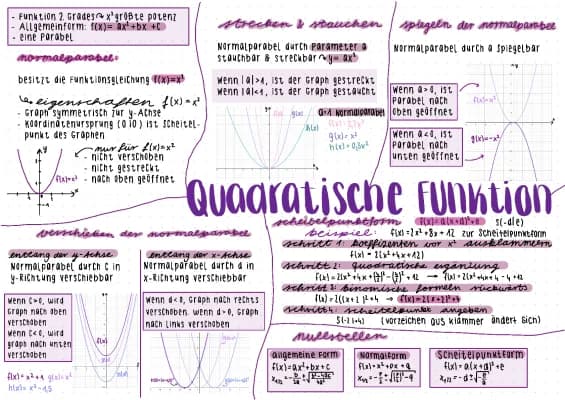 - Funktion 2. Grades → x² größte Potenz
- Allgemeinform: f(x) = ax² + bx + c
- eine Parabel
normalparabel:
besitzt die Funktionsgleichung f(x)=x²
eigenschaften f(x) = x²
- Graph symmetrisch zur y-Achse
- Koordinatenursprung (0|0) ist Scheitel-
punkt des Graphen
nur für f(x)=x²
- nicht verschoben
- nicht gestreckt
- nach oben geöffnet
f(x)=x²
strecken & stauchen
Normalparabel durch Parameter a
stauchbar & streckbar → y = ax²
Wenn |a|>1, ist der Graph gestreckt
Wenn |a|<1, ist der Graph gestaucht
a=1 Normalparabel
g(x) = x²
h(x) = 0,3x²
spiegeln der normalparabel
Normalparabel durch a spiegelbar
Wenn a>0, ist
Parabel nach
oben geöffnet
f(x)=x²
Wenn a<0, ist
Parabel nach
unten geöffnet
g(x)=-x²
Quadratische Funktion
verschieben der normalparabel
entlang der y-Achse
Normalparabel durch c in
y-Richtung verschiebbar
Wenn c>0, wird
Graph nach oben
verschoben
Wenn c<0, wird
graph nach unten
verschoben
f(x) = x²+1 g(x) = x²
h(x) = x²-1,5
entlang der x-Achse
Normalparabel durch d in
x-Richtung verschiebbar
Wenn d<0, Graph nach rechts
verschoben. wenn d>0, Graph
nach links verschoben
scheitelpunktform f(x) = a(x+d)²+e S(-d|e)
beispiel: f(x)=2x²+8x+12 zur Scheitelpunktform
schritt 1: koeffizienten vor x² ausklammern
f(x) = 2(x²+4x+6)
schritt 2: quadratische ergänzung
schritt 3: binomische formeln rückwärts
schritt 4: scheitelpunkt angeben
(vorzeichen aus klammer ändert sich)
nullstellen
allgemeine Form
f(x) = ax²+bx+c
Normalform
f(x) = x²+px+q
Scheitelpunktform
f(x) = a(x+d)²+e